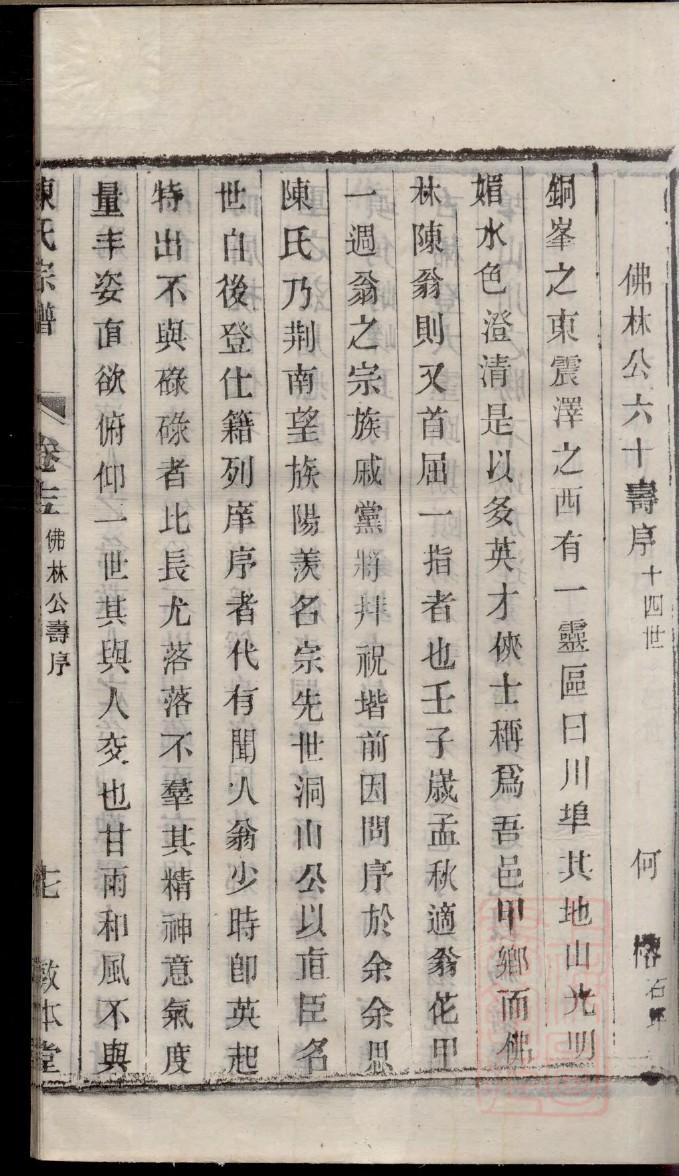 佛林公六十壽序 十四世 何 石
銅峯之東震澤之西有一靈區曰川埠其地山光明
媚水色澄清是以多英才俠士稱爲吾邑甲鄉而佛
林陳翁則又首屈一指者也壬子歲孟秋適翁花甲
一週翁之宗族戚黨將拜祝堦前因問序於余余思
陳氏乃荆南望族陽羨名宗先世洞山公以直臣名
世自後登仕籍列庠序者代有聞人翁少時卽英起
特出不與碌碌者比長尤落落不羣其精神意氣度
量丰姿直欲俯仰一世其與人交也甘雨和風不與
陳氏宗譜 卷十五 佛林公壽序 七 敦本堂